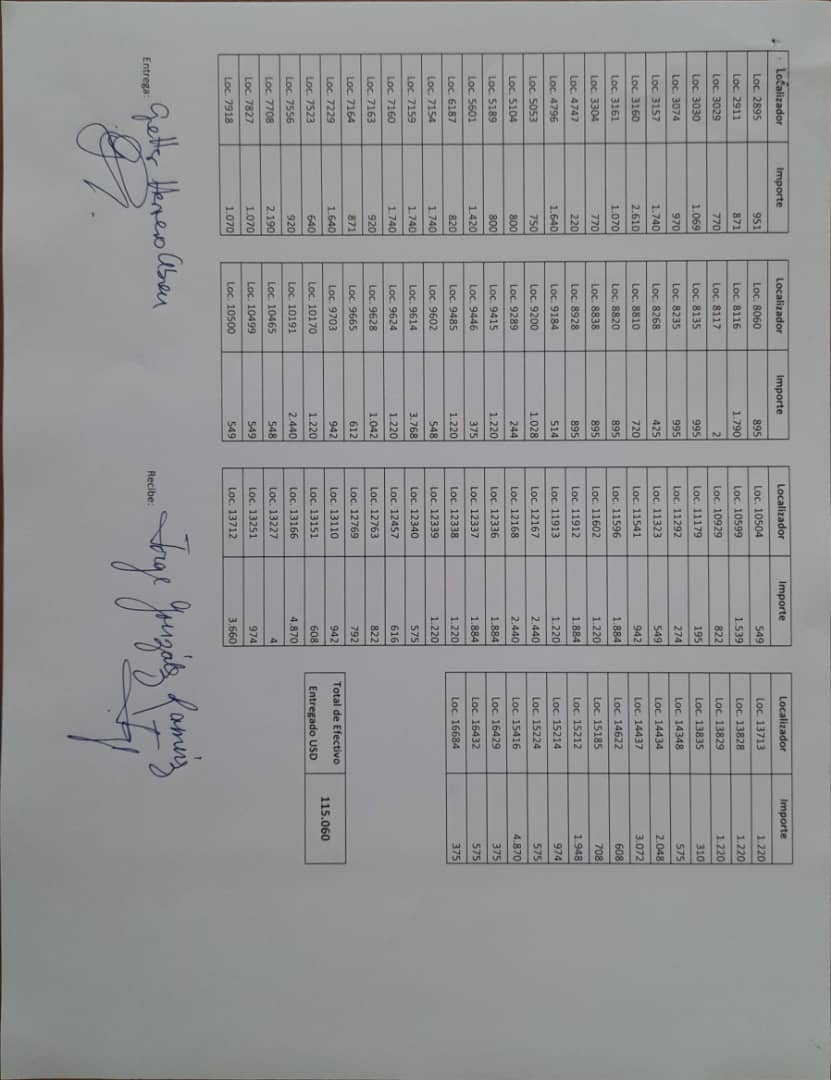 Localizador Importe Localizador Importe Localizador Importe Localizador Importe
Loc. 2895 951 Loc. 8060 895 Loc. 10504 549 Loc. 13713 1.220
Loc. 2911 871 Loc. 8116 1.790 Loc. 10599 1.539 Loc. 13828 1.220
Loc. 3029 770 Loc. 8117 2 Loc. 10929 822 Loc. 13829 1.220
Loc. 3030 1.069 Loc. 8135 995 Loc. 11179 195 Loc. 13835 310
Loc. 3074 970 Loc. 8235 995 Loc. 11292 274 Loc. 14348 575
Loc. 3157 1.740 Loc. 8268 425 Loc. 11323 549 Loc. 14434 2.048
Loc. 3160 2.610 Loc. 8810 720 Loc. 11541 942 Loc. 14437 3.072
Loc. 3161 1.070 Loc. 8820 895 Loc. 11596 1.884 Loc. 14622 608
Loc. 3304 770 Loc. 8838 895 Loc. 11602 1.220 Loc. 15185 708
Loc. 4747 220 Loc. 8928 895 Loc. 11912 1.884 Loc. 15212 1.948
Loc. 4796 1.640 Loc. 9184 514 Loc. 11913 1.220 Loc. 15214 974
Loc. 5053 750 Loc. 9200 1.028 Loc. 12167 2.440 Loc. 15224 575
Loc. 5104 800 Loc. 9289 244 Loc. 12168 2.440 Loc. 15416 4.870
Loc. 5189 800 Loc. 9415 1.220 Loc. 12336 1.884 Loc. 16429 375
Loc. 5601 1.420 Loc. 9446 375 Loc. 12337 1.884 Loc. 16432 575
Loc. 6187 820 Loc. 9485 1.220 Loc. 12338 1.220 Loc. 16684 375
Loc. 7154 1.740 Loc. 9602 548 Loc. 12339 1.220
Loc. 7159 1.740 Loc. 9614 3.768 Loc. 12340 575
Loc. 7160 1.740 Loc. 9624 1.220 Loc. 12457 616
Loc. 7163 920 Loc. 9628 1.042 Loc. 12763 822
Loc. 7164 871 Loc. 9665 612 Loc. 12769 792
Loc. 7229 1.640 Loc. 9703 942 Loc. 13110 942 Total de Efectivo
Loc. 7523 640 Loc. 10170 1.220 Loc. 13151 608 Entregado USD 115.060
Loc. 7556 920 Loc. 10191 2.440 Loc. 13166 4.870
Loc. 7708 2.190 Loc. 10465 548 Loc. 13227 4
Loc. 7827 1.070 Loc. 10499 549 Loc. 13251 974
Loc. 7918 1.070 Loc. 10500 549 Loc. 13712 3.660
Entrega: Herrero Abreu Recibe: Jorge González Ramírez